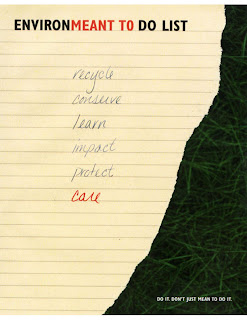 ENVIRONMEANT TO DO LIST
recycle
conserve
learn
impact
protect
care
DO IT. DON'T JUST MEAN TO DO IT.